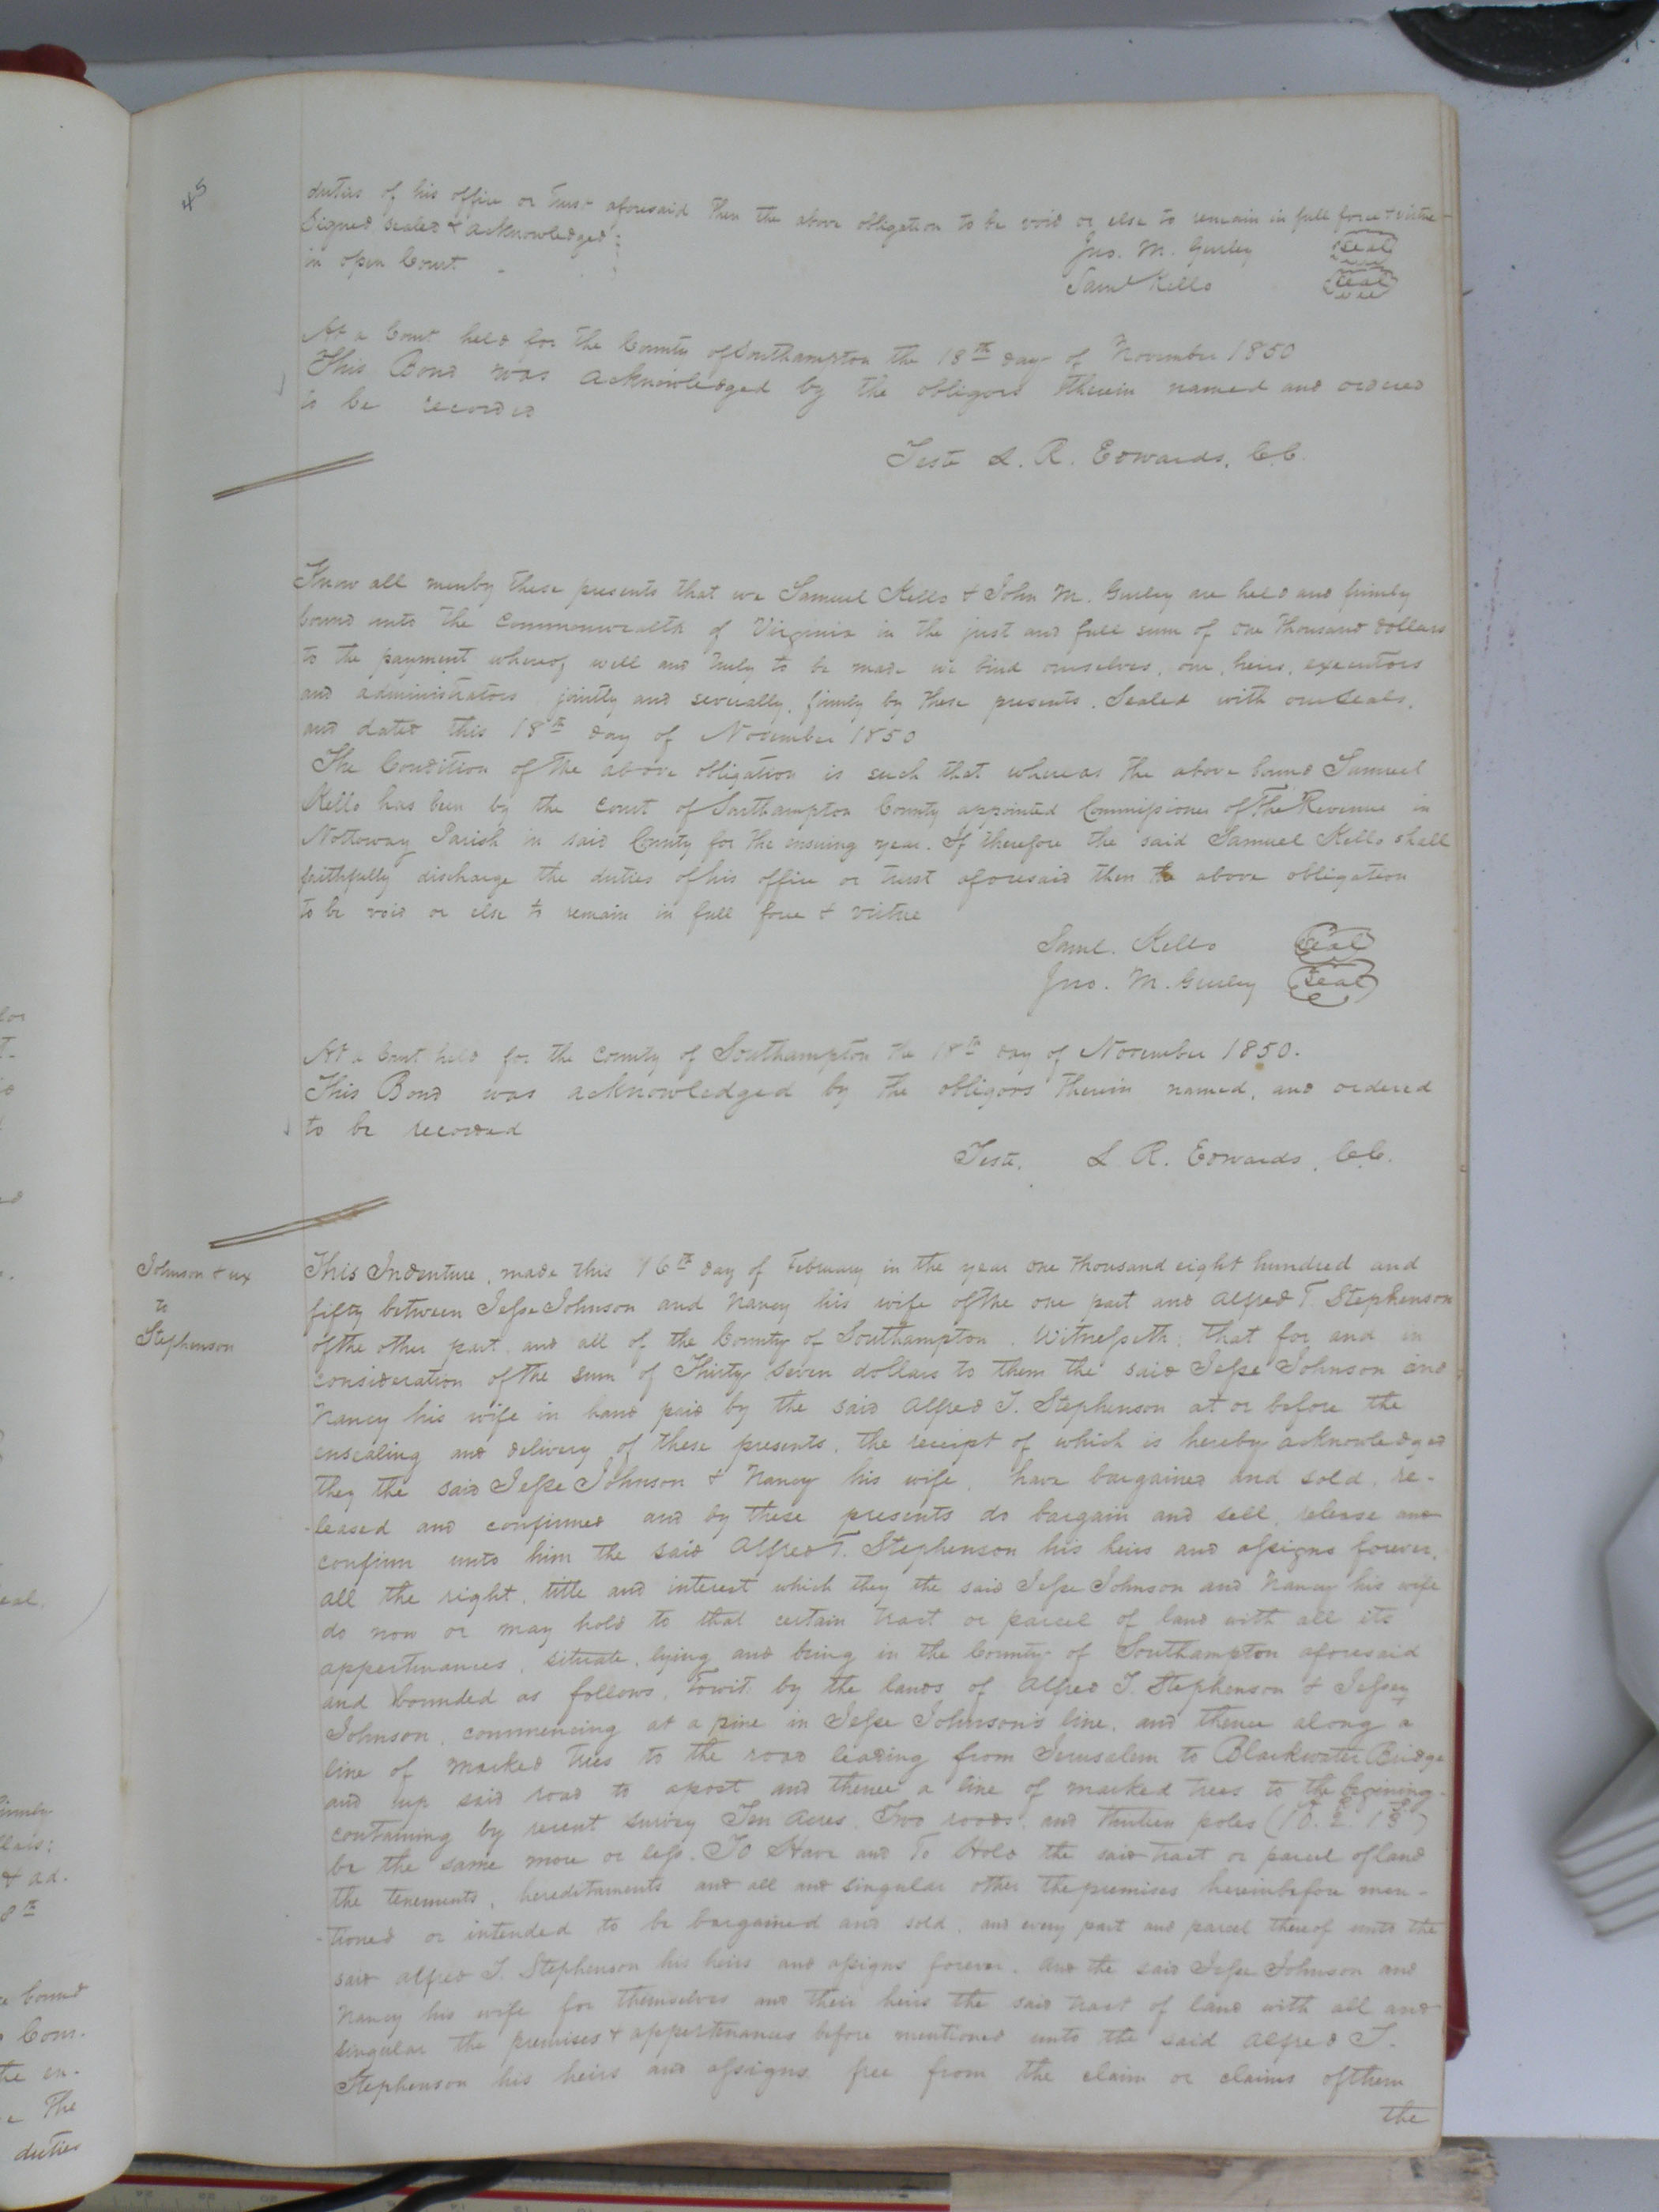 45
duties of his office or trust aforesaid then the above obligation to be void or else to remain in full force & virtue
Signed sealed & acknowledged
in open Court
Jno. M. Gurley Seal
Saml Kello Seal
At a Court held for the County of Southampton the 18th day of November 1850
This Bond was acknowledged by the obligors therein named and ordered
to be recorded
Teste L. R. Edwards, C.C.
Know all men by these presents that we Samuel Kello & John M. Gurley are held and firmly
bound unto the Commonwealth of Virginia in the just and full sum of one thousand dollars
to the payment whereof well and truly to be made we bind ourselves, our, heirs, executors
and administrators jointly and severally, firmly by these presents. Sealed with our Seals,
and dated this 18th day of November 1850
The Condition of the above obligation is such that whereas the above bound Samuel
Kello has been by the Court of Southampton County appointed Commissioner of The Revenue in
Nottoway Parish in said County for the insuing year. If therefore the said Samuel Kello shall
faithfully discharge the duties of his office or trust aforesaid then the above obligation
to be void or else to remain in full force & virtue
Saml. Kello Seal
Jno. M. Gurley Seal
At a Court held for the County of Southampton the 18th day of November 1850.
This Bond was acknowledged by the obligors therein named, and ordered
to be recorded
Teste, L. R. Edwards, C.C.
Johnson & ux
to
Stephenson
This Indenture, made this 16th day of February in the year one thousand eight hundred and
fifty between Jesse Johnson and Nancy his wife of the one part and Alfred T. Stephenson
of the other part, and all of the County of Southampton. Witnesseth, that for and in
consideration of the sum of Thirty Seven dollars to them the said Jesse Johnson and
Nancy his wife in hand paid by the said Alfred T. Stephenson at or before the
ensealing and delivery of these presents, the receipt of which is hereby acknowledged
they the said Jesse Johnson & Nancy his wife, have bargained and sold, re-
-leased and confirmed and by these presents do bargain and sell, release and
confirm unto him the said Alfred T. Stephenson his heirs and assigns forever,
all the right, title and interest which they the said Jesse Johnson and Nancy his wife
do now or may hold to that certain tract or parcel of land with all its
appertenances, situate, lying and being in the County of Southampton aforesaid
and bounded as follows, Towit: by the lands of Alfred T. Stephenson & Jessey
Johnson, commencing at a pine in Jesse Johnson's line, and thence along a
line of marked trees to the road leading from Jerusalem to Blackwater Bridge
and up said road to a post and thence a line of marked trees to the begining
containing by recent survey Ten Acres, Two roods, and thirteen poles (10. 2. 13)
be the same more or less. To Have and To Hold the said tract or parcel of land
the tenements, hereditaments and all and singular other the premises hereinbefore men-
-tioned or intended to be bargained and sold, and every part and parcel thereof unto the
said Alfred T. Stephenson his heirs and assigns forever. And the said Jesse Johnson and
Nancy his wife for themselves and their heirs the said tract of land with all and
singular the premises & appertenances before mentioned unto the said Alfred T.
Stephenson his heirs and assigns free from the claim or claims of them
the